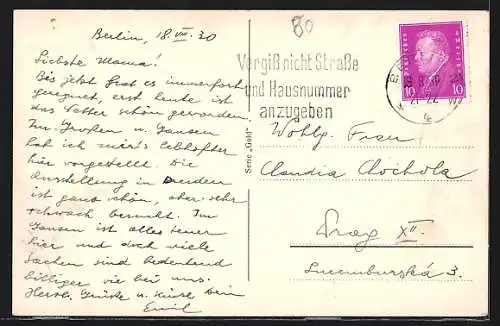 Berlin, 18 VIII. 30
Liebste Mama!
Bis jetzt hat es immerfort
geregnet, erst heute ist
das Wetter schön geworden.
Im Großen u. Ganzen
hab ich mir's lebhafter
hier vorgestellt. Die
Ausstellung in Dresden
ist ganz schön, aber sehr
schwach besucht. Im
Ganzen ist alles teuer
hier und doch viele
Sachen sind bedeutend
billiger wie bei uns.
Herzl. Grüße u. Küsse Dein
Emil
Serie „Gohl“
80
Vergiß nicht Straße
und Hausnummer
anzugeben
Deutsches Reich
10 10
21-22
Wohlg. Frau
Claudia
Prag XII
Lucemburská 3.